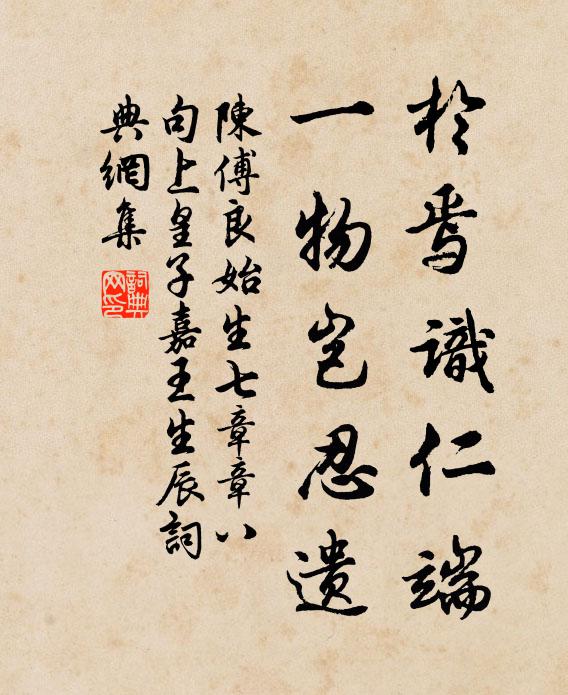 於焉識仁端
一物豈忍遺
陳傅良始生七章章八
句上皇子嘉王生辰詞
典網集
詞典
网印